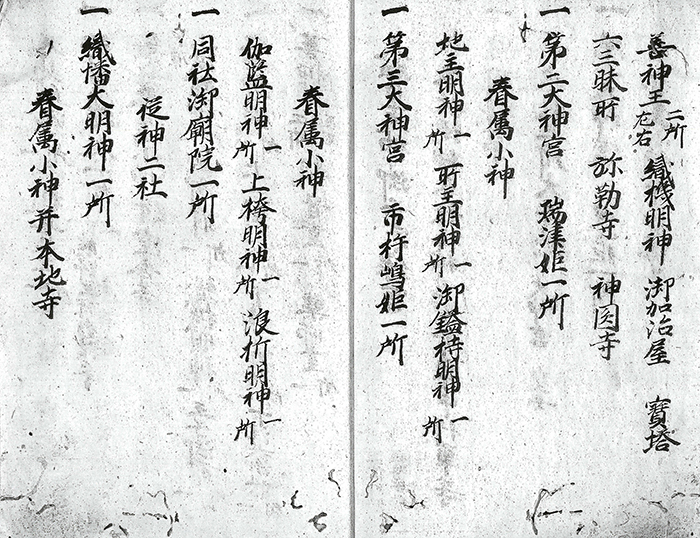 善神王二所左右 織機明神 御加治屋 寳塔
六三昧所 弥勒寺 神宮寺
一 第二大神宮 瑞津姫一所
眷属小神
地主明神一所 所主明神一所 御鎰持明神一所
一 第三大神宮 市杵嶋姫一所
眷属小神
伽藍明神一所 上袴明神一所 浪折明神一所
一 同社御廟院一所
従神二社
一 織幡大明神一所
眷属小神并本地寺